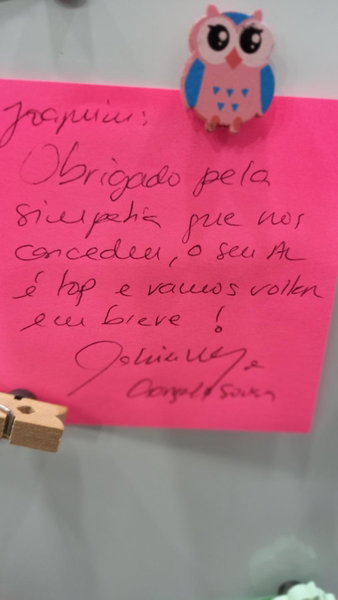 Joaquim:
Obrigado pela
simpatia que nos
concedeu, o seu AL
é top e vamos voltar
em breve !
e
Gonçalo Sousa